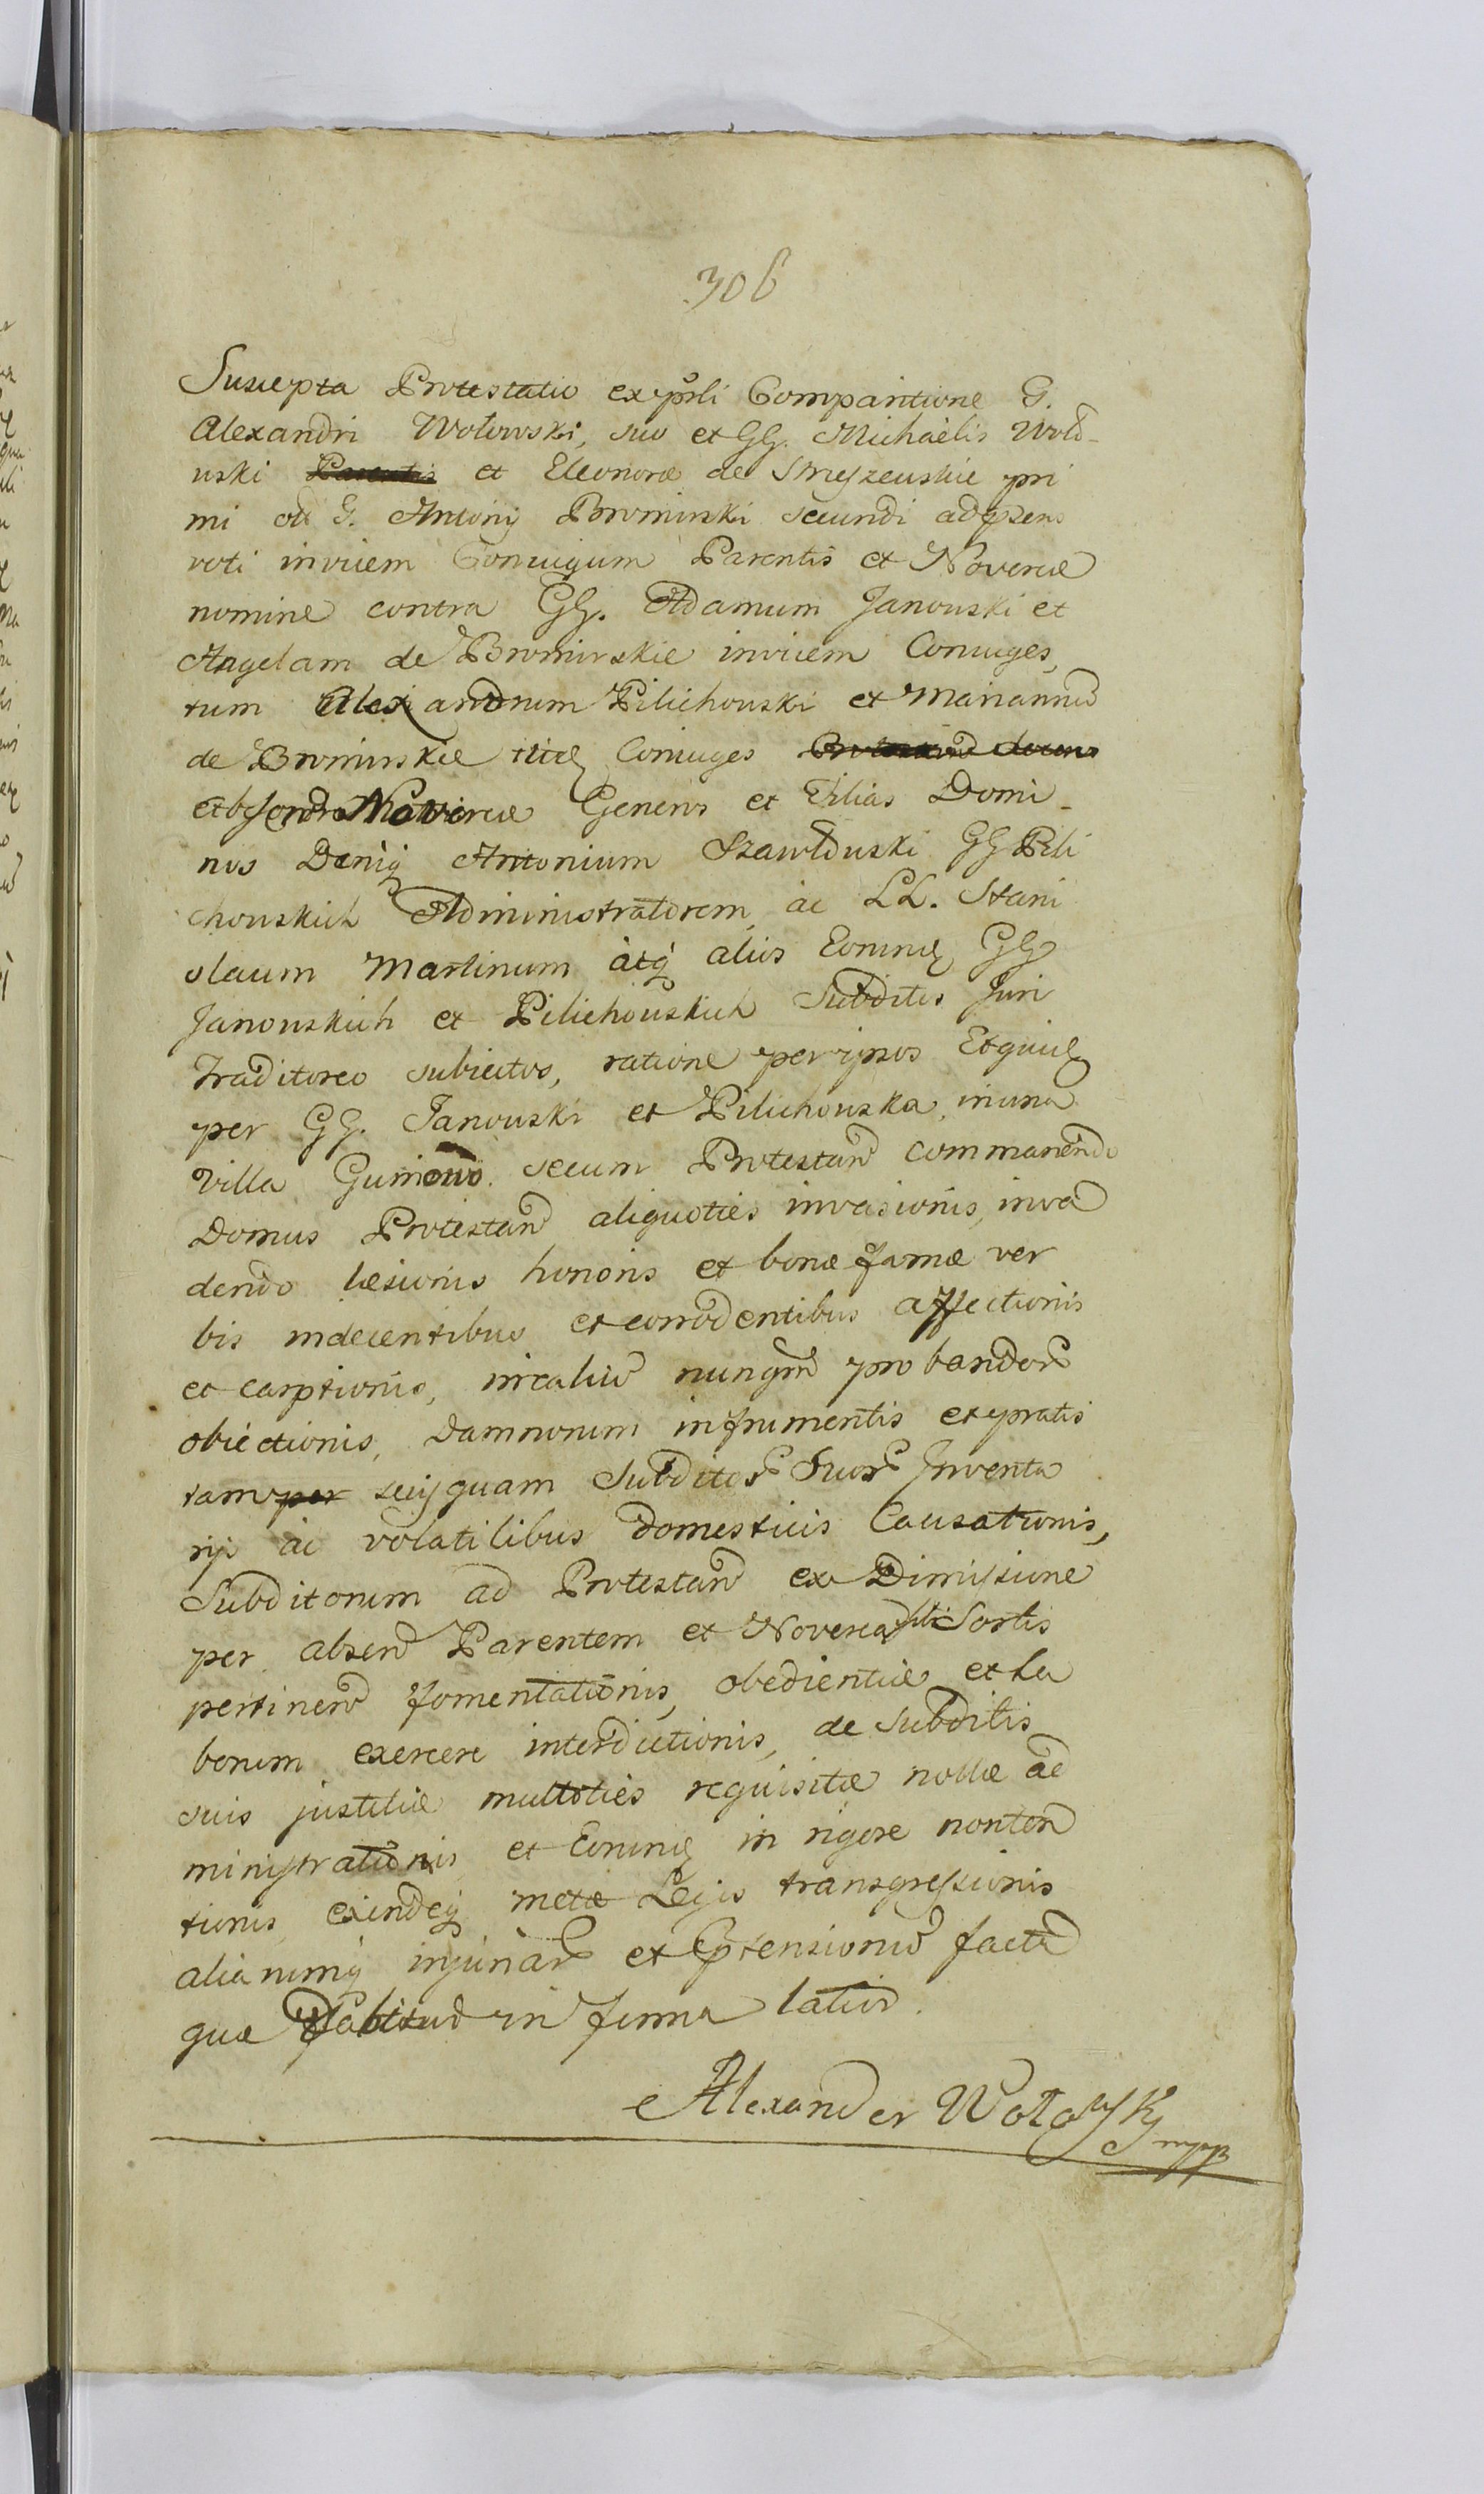 306
Suscepta Protestatio ex psli Comparitione G.
Alexandri Wołowski, suo et GG. Michaelis Woło-
uski Parentis et Eleonoræ de Stryszeuskie pri
mi et G. Antonij Bromirski secundi adpsens
voti invicem Coniugum Parentis et Novercæ
nomine contra GG. Adamum Janouski et
Angelam de Bromirskie invicem Coniuges,
tum Alexandrum Pilichouski et Mariannã
de Bromirskie itidẽ Coniuges
Novercæ Generos et Filias Domi-
nos Deniq Antonium Szawłouski GG Pili
chouskich Administratorem ac LL. Stani
slaum Martinum atq alios Eorundẽ GG
Janouskich et Pilichouskich Subditos Juri
Traditoreo subiectos, ratione per ipsos Etquidẽ
per GG. Janouski et Pilichouska, inuna
Villa Gumowo secum Protestand commanendo
Domus Protestand aliquoties invasionis, inva
dendo læsionis honoris et bonæ famæ ver
bis indecentibus et corrodentibus affectionis
et carptionis, nunqm probandorꝫ
obiectionis, Damnorum infrumentis et pratis
tam per seipsquam Subditorꝫ Suorꝫ Inventa
rijs ac volatilibus domesticis Causationis,
Subditorum ad Protestand ex Dimissione
per absend Parentem et Novercã sibi Sortis
pertinend fomentationis, obedientiæ et La
borum exercere interdictionis, de Subditis
suis justitiæ multoties requisitæ nollæ ad
ministrationis et Eorundẽ in rigore nonten
tionis exindeq metæ Legis transgressionis
aliarumq injuriarꝫ et Ptensionũ facta
quæ in forma latiori.
Alexander Wołowsky mpp